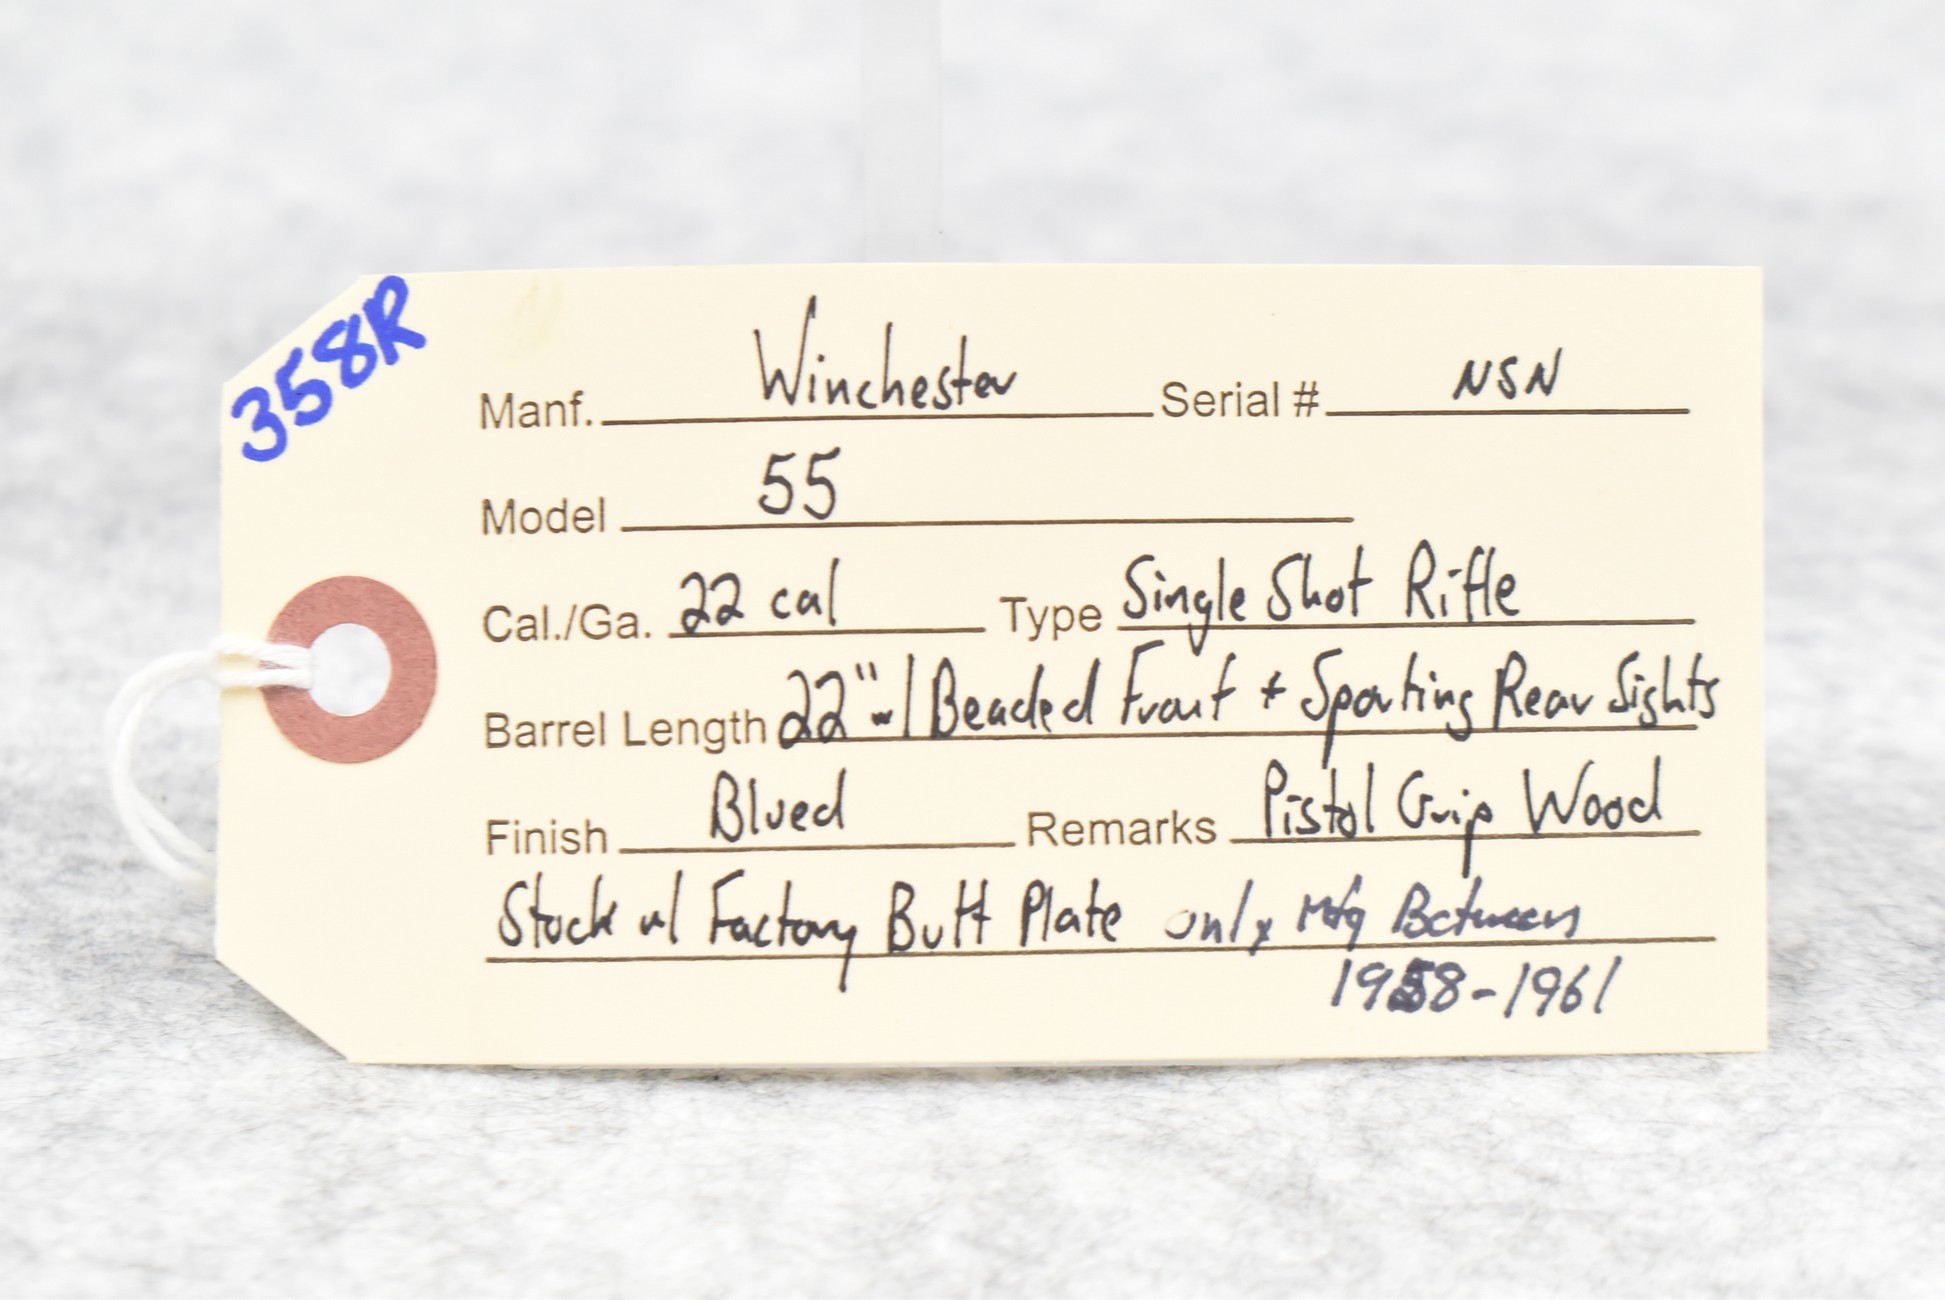 358R
Manf. Winchester Serial # NSN
Model 55
Cal./Ga. 22 cal Type Single Shot Rifle
Barrel Length 22" w/ Beaded Front + Sporting Rear Sights
Finish Blued Remarks Pistol Grip Wood
Stock w/ Factory Butt Plate only Mfg Between
1958-1961